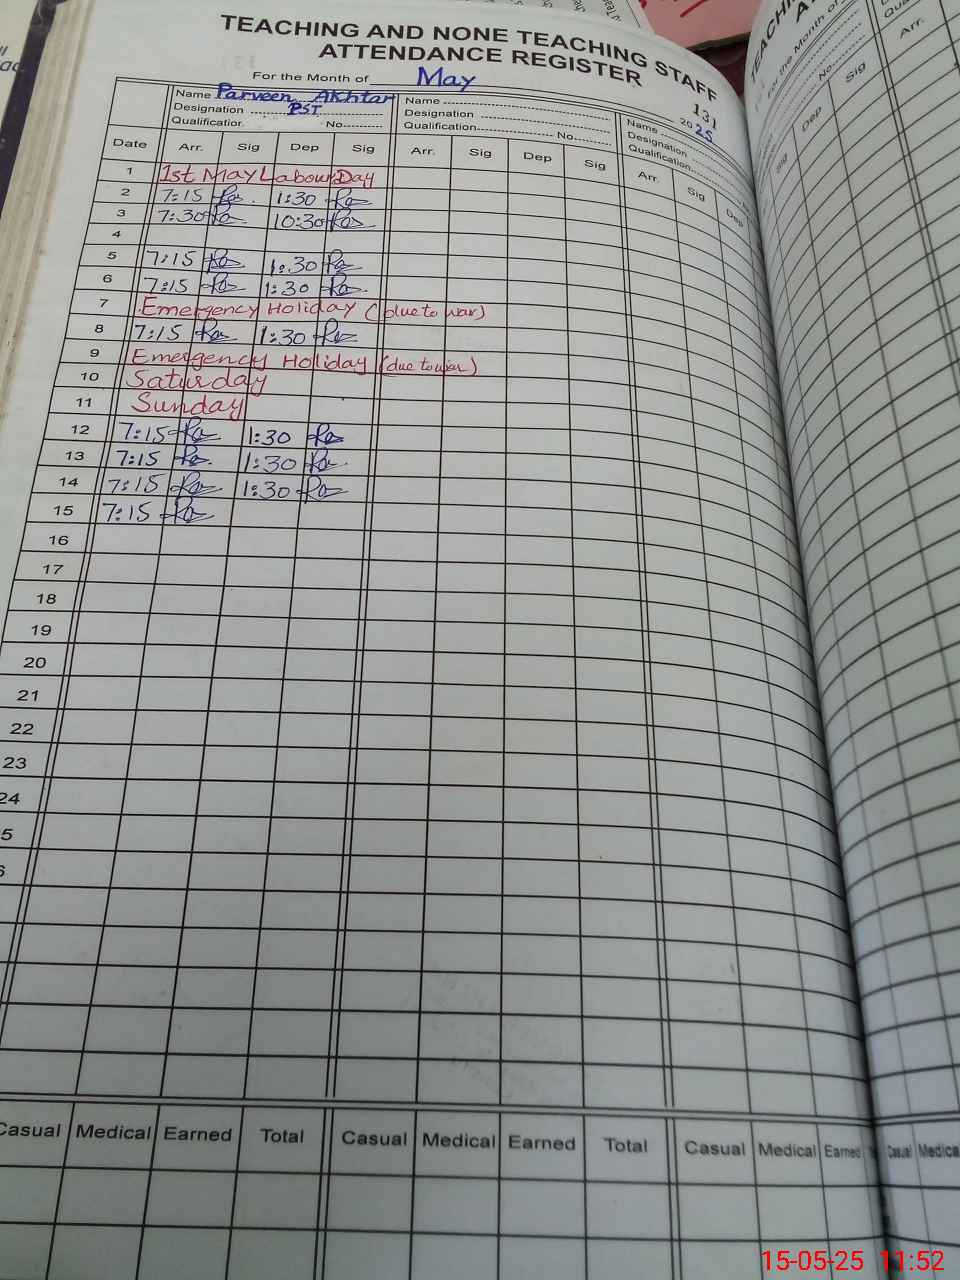 TEACHING AND NONE TEACHING STAFF
ATTENDANCE REGISTER
For the Month of May 2025
131
Name Parveen Akhtar Name Name
Designation PST Designation Designation
Qualification No. Qualification No. Qualification
Date Arr. Sig Dep Sig Arr. Sig Dep Sig Arr. Sig Dep
1 1st May Labour Day
2 7:15 1:30
3 7:30 10:30
4
5 7:15 1:30
6 7:15 1:30
7 Emergency Holiday (due to war)
8 7:15 1:30
9 Emergency Holiday (due to war)
10 Saturday
11 Sunday
12 7:15 1:30
13 7:15 1:30
14 7:15 1:30
15 7:15
16
17
18
19
20
21
22
23
24
5
Casual Medical Earned Total Casual Medical Earned Total Casual Medical Earned
Casual Medica
TEACHIN
the Month of
No.
Sig Dep Sig
Qua
Arr.
15-05-25 11:52